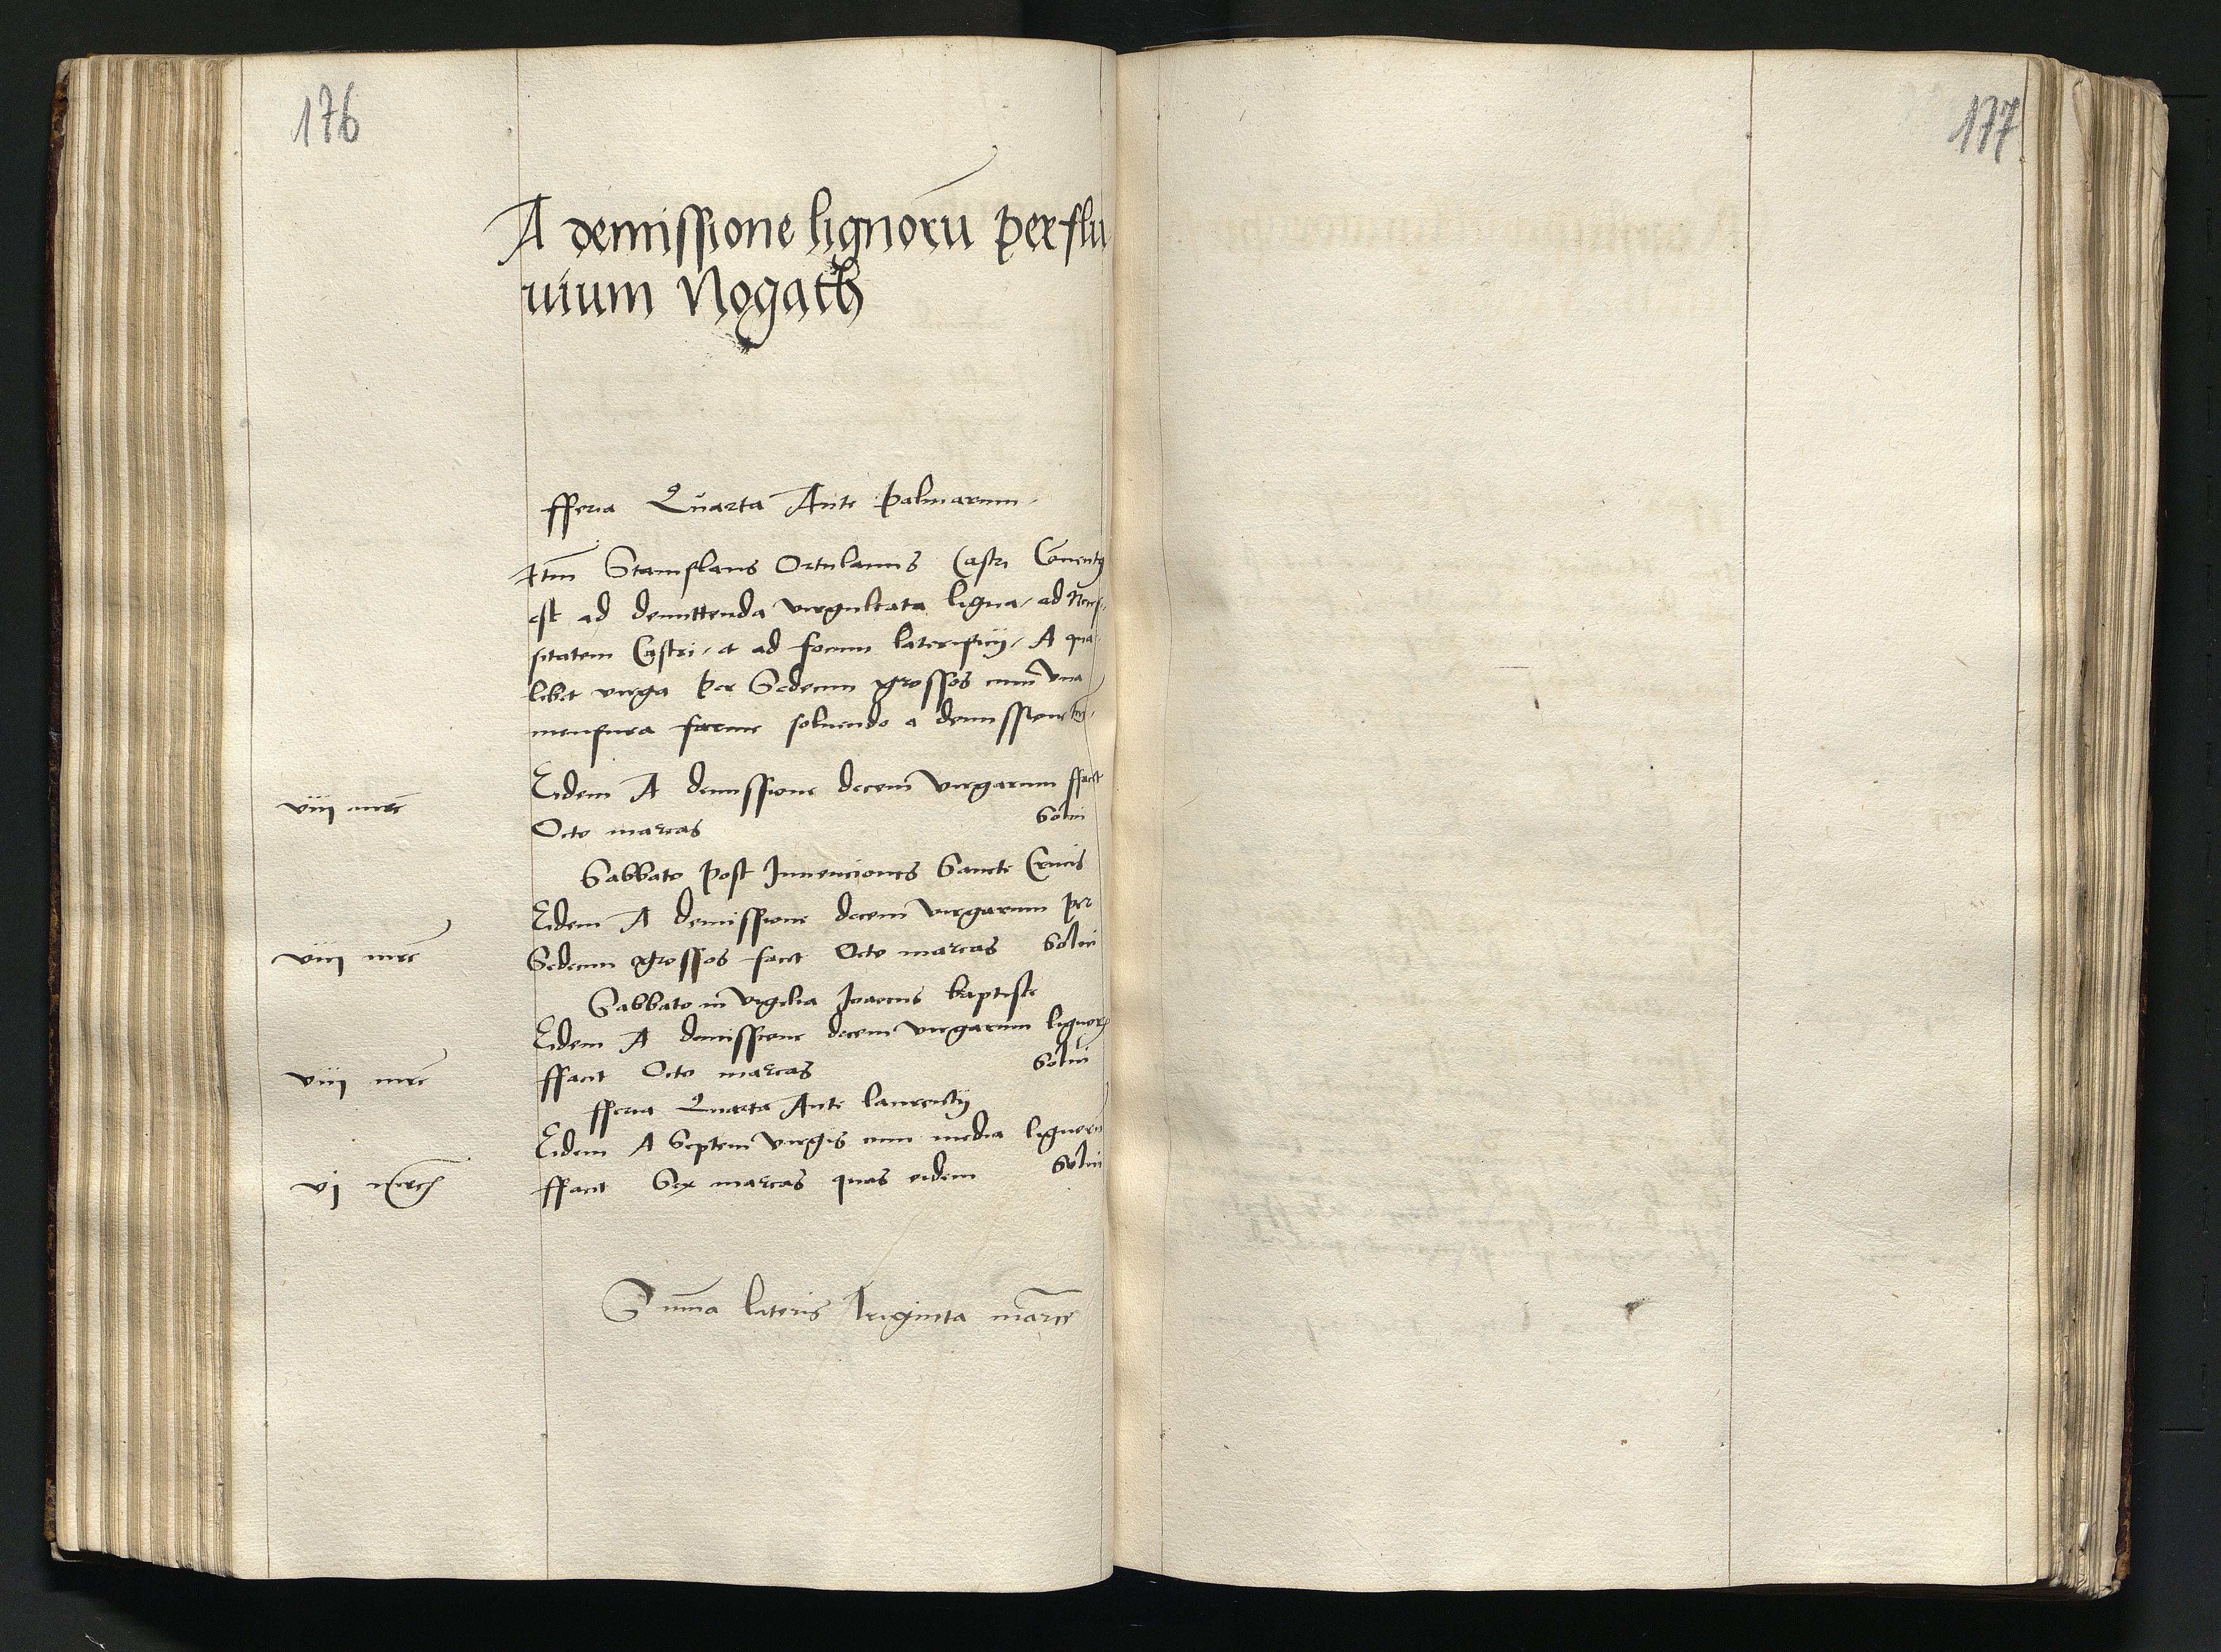 176
177
A demissione lignorū per flu
uium Nogath
fferia Quarta Ante Palmarum
Itm Stanislaus Ortulanus Castri Conuentꝰ
est ad demittenda virgultata ligna, ad Neces,
sitatem Castri, et ad focum laterificij, A qua
libet virga per Sedecim grossos cum vna
mensura farine soluendo a demissione
Eidem A demissione decem virgarum ffacit
viii mrc Octo marcas Solui
Sabbato post Inuenciones Sancte Crucis
Eidem A demissione decem virgarum per
viii mrc Sedecim grossos facit Octo marcas Solui
Sabbato in vigilia Joannis baptiste
Eidem A demissione decem virgarum lignorꝝ
viii mrc ffacit Octo marcas Solui
fferia Quarta Ante laurentij
Eidem A Septem virgis cum media lignorū
vj mrc ffacit Sex marcas quas eidem Solui
Summa lateris triginta marce